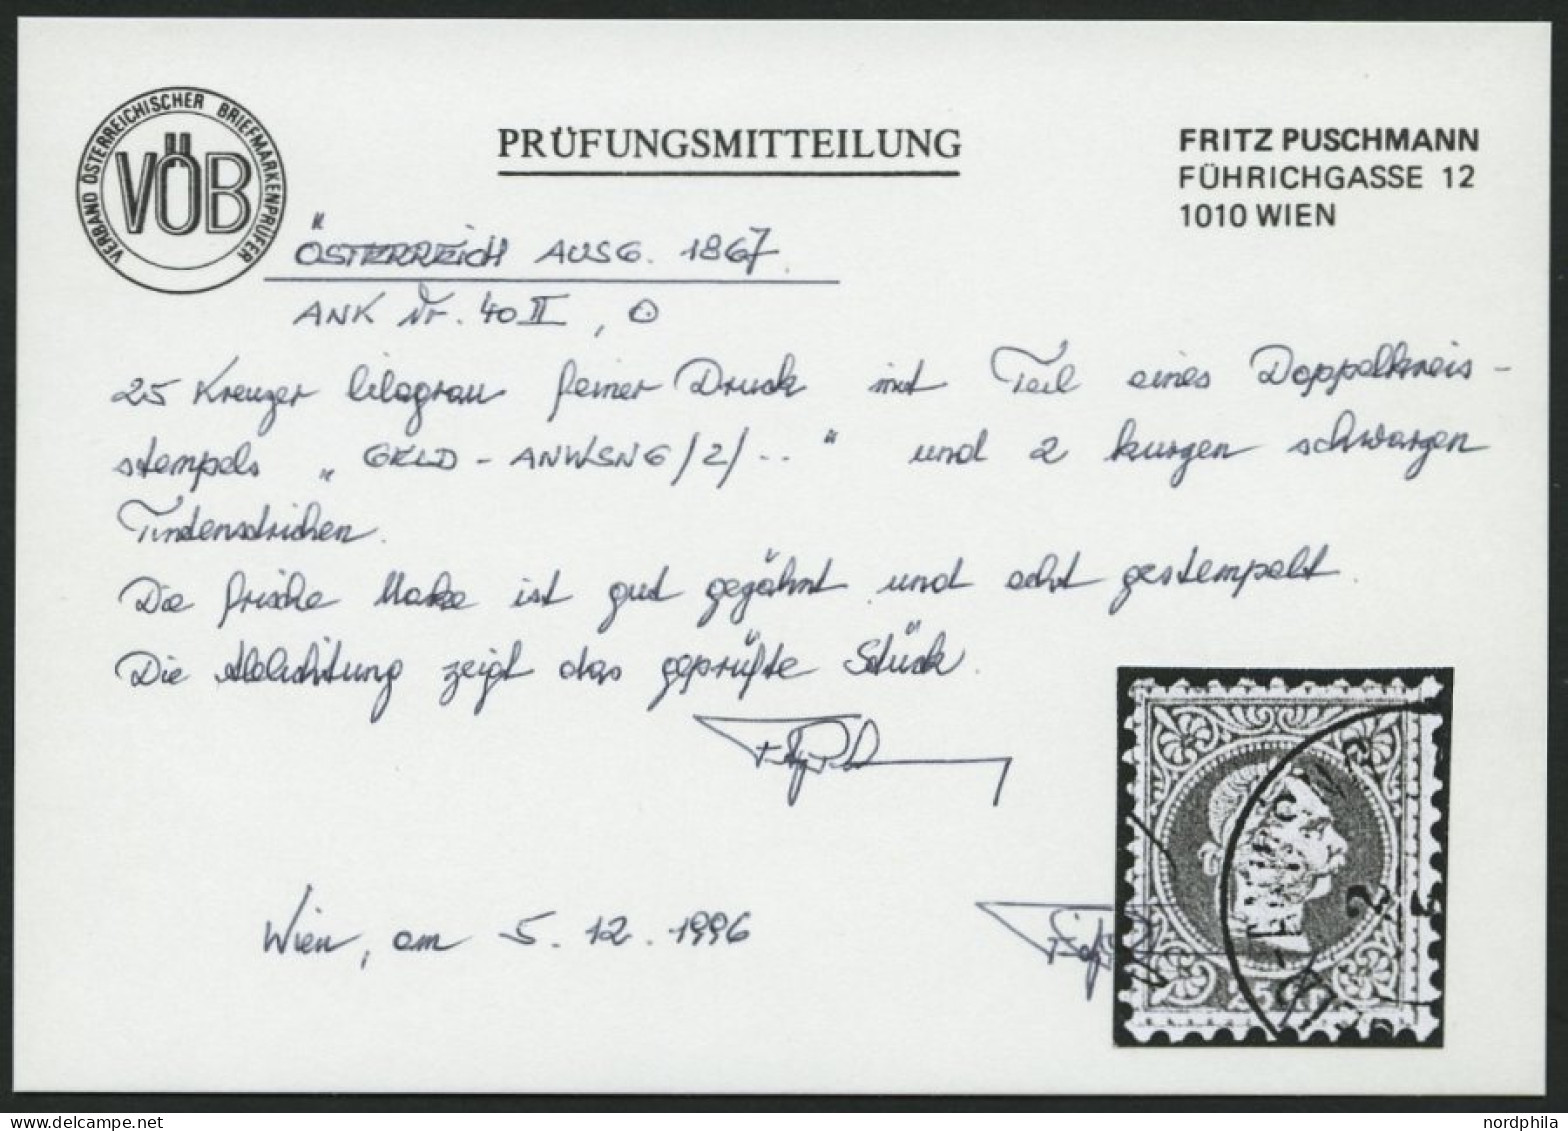 VERBAND ÖSTERREICHISCHER BRIEFMARKENPRÜFER
VÖB
PRÜFUNGSMITTEILUNG
FRITZ PUSCHMANN
FÜHRICHGASSE 12
1010 WIEN
ÖSTERREICH AUSG. 1867.
ANK Nr. 40 II, O
25 Kreuzer lilagrau feiner Druck mit Teil eines Doppelkreis-
stempels „GELD-ANWSNG/2/.." und 2 kurzen schwarzen
Tintenstrichen.
Die frische Marke ist gut gezähnt und echt gestempelt.
Die Ablichtung zeigt das geprüfte Stück.
Wien, am 5.12.1996
nordphila